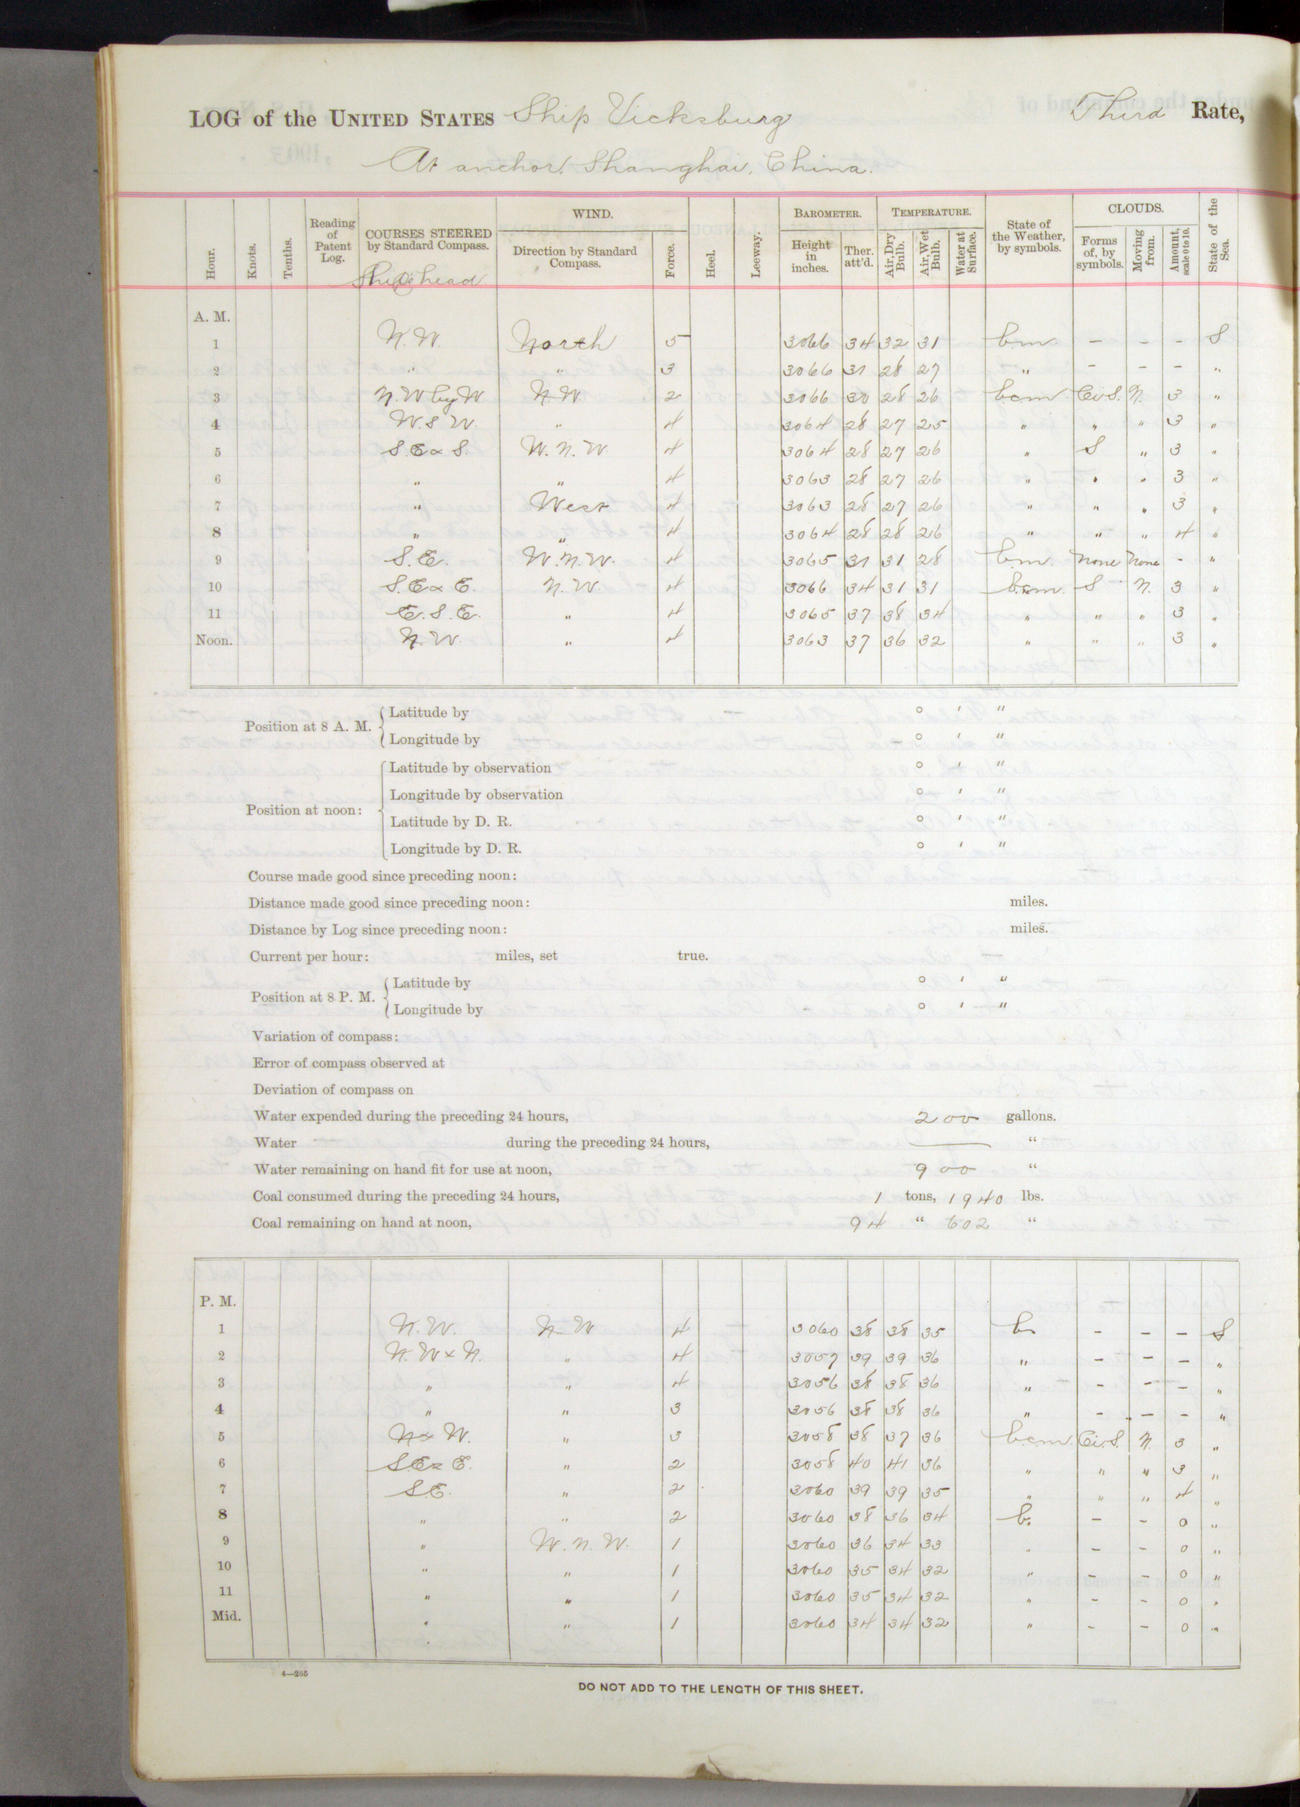 LOG of the UNITED STATES Ship Vicksburg Third Rate,
At anchor, Shanghai, China.
Hour. Knots. Tenths. Reading of Patent Log. COURSES STEERED by Standard Compass. WIND. Direction by Standard Compass. Force. Heel. Leeway. BAROMETER. Height in inches. Ther. att'd. TEMPERATURE. Air, Dry Bulb. Air, Wet Bulb. Water at Surface. State of the Weather, by symbols. CLOUDS. Forms of, by symbols. Moving from. Amount, scale 0 to 10. State of the Sea.
Ship's head
A. M.
1 N.W. North 5 3066 34 32 31 b.m. - - - S
2 " " 3 3066 31 28 27 " - - - "
3 N.W by W N.W 2 3066 30 28 26 bcm Ci.S. N. 3 "
4 W.S.W. " 4 3064 28 27 25 " " " 3 "
5 S.E x S. W.N.W 4 3064 28 27 26 " S " 3 "
6 " " 4 3063 28 27 26 " " " 3 "
7 " West 4 3063 28 27 26 " " " 3 "
8 " " 4 3064 28 28 26 " " " 4 "
9 S.E. W.N.W. 4 3065 31 31 28 b.m. None None - "
10 S.E x E. N.W. 4 3066 34 31 31 b.c.m. S N. 3 "
11 E.S.E. " 4 3065 37 38 34 " " " 3 "
Noon. N.W. " 4 3063 37 36 32 " " " 3 "
Position at 8 A. M. Latitude by ° ′ ″
Longitude by ° ′ ″
Position at noon: Latitude by observation ° ′ ″
Longitude by observation ° ′ ″
Latitude by D. R. ° ′ ″
Longitude by D. R. ° ′ ″
Course made good since preceding noon:
Distance made good since preceding noon: miles.
Distance by Log since preceding noon: miles.
Current per hour: miles, set true.
Position at 8 P. M. Latitude by ° ′ ″
Longitude by ° ′ ″
Variation of compass:
Error of compass observed at
Deviation of compass on
Water expended during the preceding 24 hours, 200 gallons.
Water during the preceding 24 hours, — "
Water remaining on hand fit for use at noon, 900 "
Coal consumed during the preceding 24 hours, 1 tons, 1940 lbs.
Coal remaining on hand at noon, 94 " 602 "
P. M.
1 N.W. N.W 4 3060 38 38 35 b. - - - S
2 N.W x N. " 4 3057 39 39 36 " - - - "
3 " " 4 3056 38 38 36 " - - - "
4 " " 3 3056 38 38 36 " - - - "
5 N x W. " 3 3058 38 37 36 b.c.m. Ci.S. N. 3 "
6 S.E x E. " 2 3058 40 41 36 " " " 3 "
7 S.E. " 2 3060 39 39 35 " " " 4 "
8 " " 2 3060 38 36 34 b. - - 0 "
9 " W.N.W. 1 3060 36 34 33 " - - 0 "
10 " " 1 3060 35 34 32 " - - 0 "
11 " " 1 3060 35 34 32 " - - 0 "
Mid. " " 1 3060 34 34 32 " - - 0 "
4—265
DO NOT ADD TO THE LENGTH OF THIS SHEET.